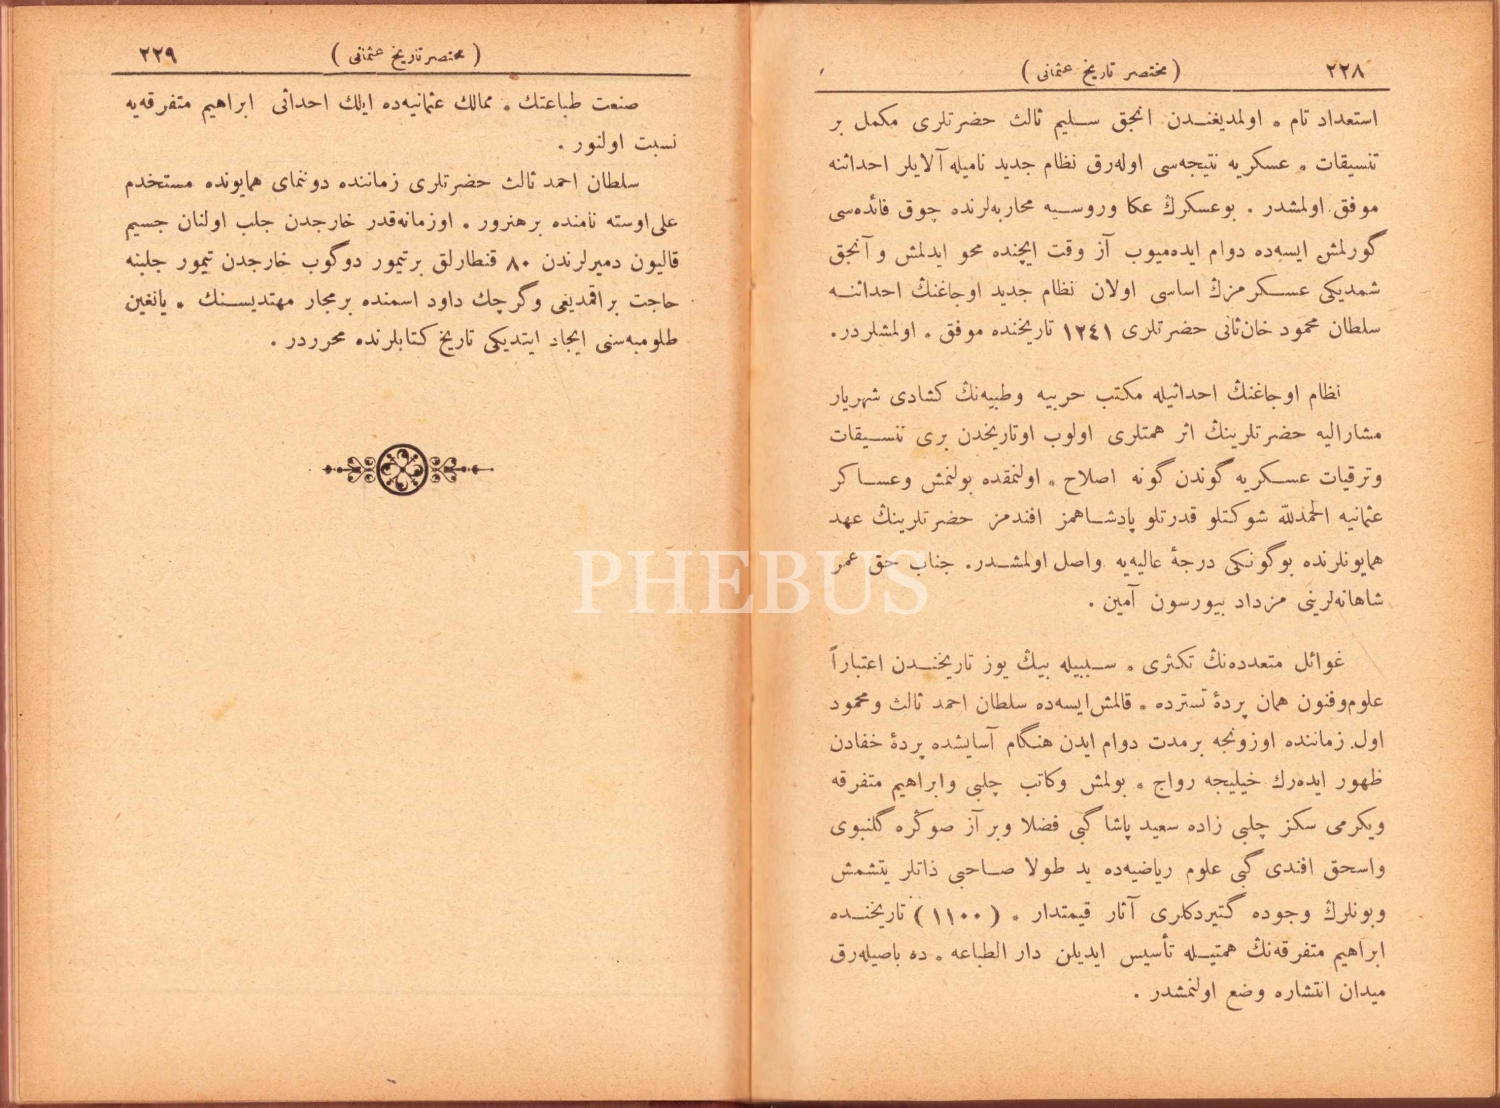 ٢٢٨
( مختصر تاریخ عثمانی )
استعداد تام ، اولمدیغندن انجق سلیم ثالث حضرتلری مکمل بر
تنسیقات ، عسکریه نتیجه‌سی اوله‌رق نظام جدید نامیله آلایلر احداثنه
موفق اولمشدر . بوعسکرڭ عکا وروسیه محاربه‌لرنده چوق فائده‌سی
گورلمش ایسه‌ده دوام ایده‌میوب آز وقت ایچنده محو ایدلمش و آنجق
شمدیکی عسکرمزڭ اساسی اولان نظام جدید اوجاغنڭ احداثنه
سلطان محمود خان‌ثانی حضرتلری ١٢٤١ تاریخنده موفق ، اولمشلردر.
نظام اوجاغنڭ احداثیله مکتب حربیه وطبیه‌نڭ کشادی شهریار
مشارالیه حضرتلرینڭ اثر همتلری اولوب اوتاریخدن بری تنسیقات
وترقیات عسکریه گوندن گونه اصلاح ، اولنمقده بولنمش وعساکر
عثمانیه الحمدلله شوکتلو قدرتلو پادشاهمز افندمز حضرتلرینڭ عهد
همایونلرنده بوگونکی درجهٔ عالیه‌یه واصل اولمشدر. جناب حق عمر
شاهانه‌لرینی مزداد بیورسون آمین .
غوائل متعدده‌نڭ تکثری ، سببیله بیڭ یوز تاریخندن اعتباراً
علوم‌وفنون همان پردهٔ تسترده ، قالمش‌ایسه‌ده سلطان احمد ثالث ومحمود
اول زماننده اوزونجه برمدت دوام ایدن هنگام آسایشده پردهٔ خفادن
ظهور ایده‌رك خیلیجه رواج ، بولمش وکاتب چلبی وابراهیم متفرقه
ویکرمی سکز چلبی زاده سعید پاشا گبی فضلا وبر آز صوڭره گلنبوی
واسحق افندی گبی علوم ریاضیه‌ده ید طولا صاحبی ذاتلر یتشمش
وبونلرڭ وجوده گتیردکلری آثار قیمتدار ، ( ١١٠٠ ) تاریخنده
ابراهیم متفرقه‌نڭ همتیله تأسیس ایدیلن دار الطباعه ، ده باصیله‌رق
میدان انتشاره وضع اولنمشدر .
٢٢٩
( مختصر تاریخ عثمانی )
صنعت طباعتك ، ممالك عثمانیه‌ده ایلك احداثی ابراهیم متفرقه‌یه
نسبت اولنور .
سلطان احمد ثالث حضرتلری زماننده دوننمای همایونده مستخدم
علی‌اوسته نامنده برهنرور ، اوزمانه‌قدر خارجدن جلب اولنان جسیم
قالیون دمیرلرندن ٨٠ قنطارلق برتیمور دوگوب خارجدن تیمور جلبنه
حاجت براقمدیغی وگرچك داود اسمنده برمجار مهتدیسنك ، یانغین
طلومبه‌سنی ایجاد ایتدیکی تاریخ کتابلرنده محرردر .
PHEBUS